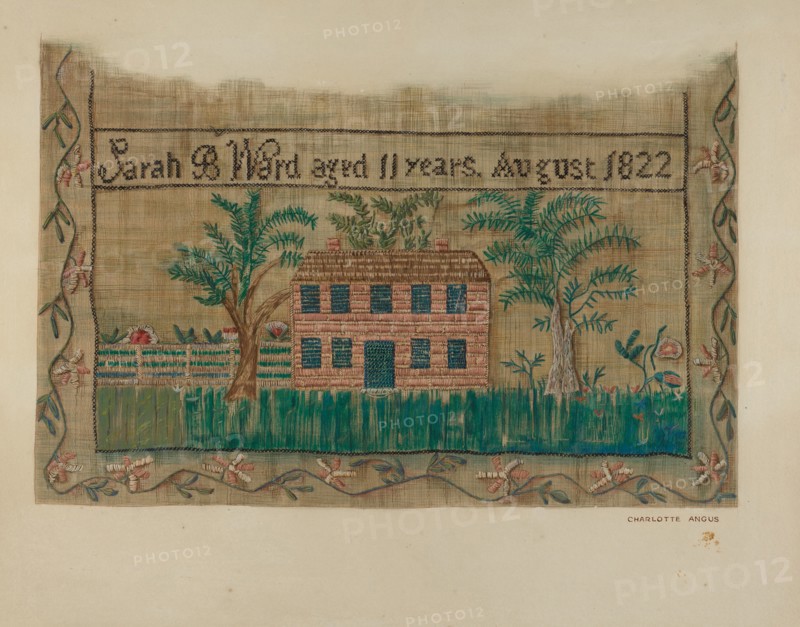 Sarah B Ward aged 11 years. August 1822
CHARLOTTE ANGUS
PHOTO12